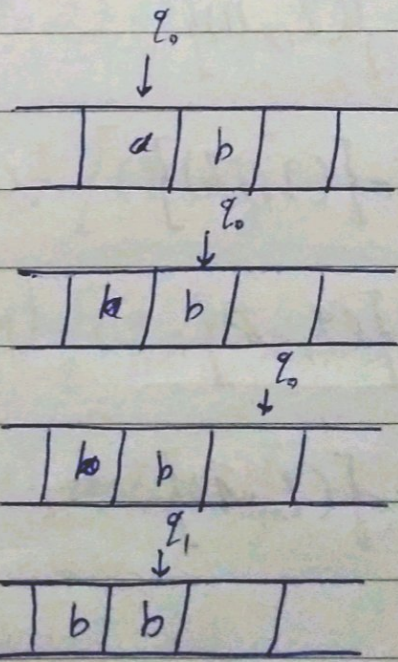 q₀
a b
q₀
b b
q₀
b b
q₁
b b